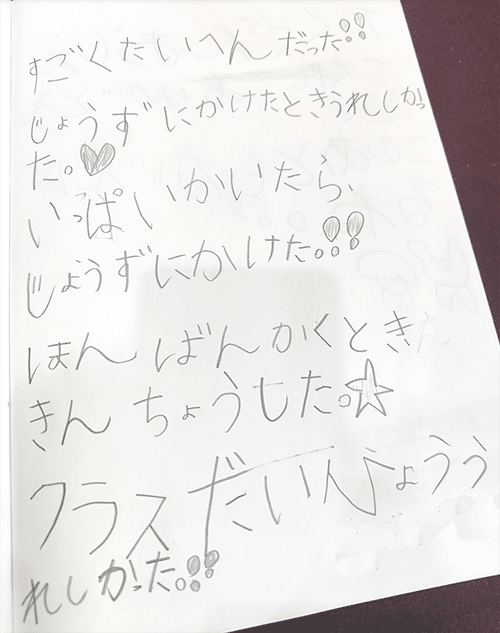 すごくたいへんだった!!
じょうずにかけたときうれしかっ
た。♥
いっぱいかいたら、
じょうずにかけた。!!
ほんばんかくとき
きんちょうした。☆
クラスだいひょうう
れしかった。!!